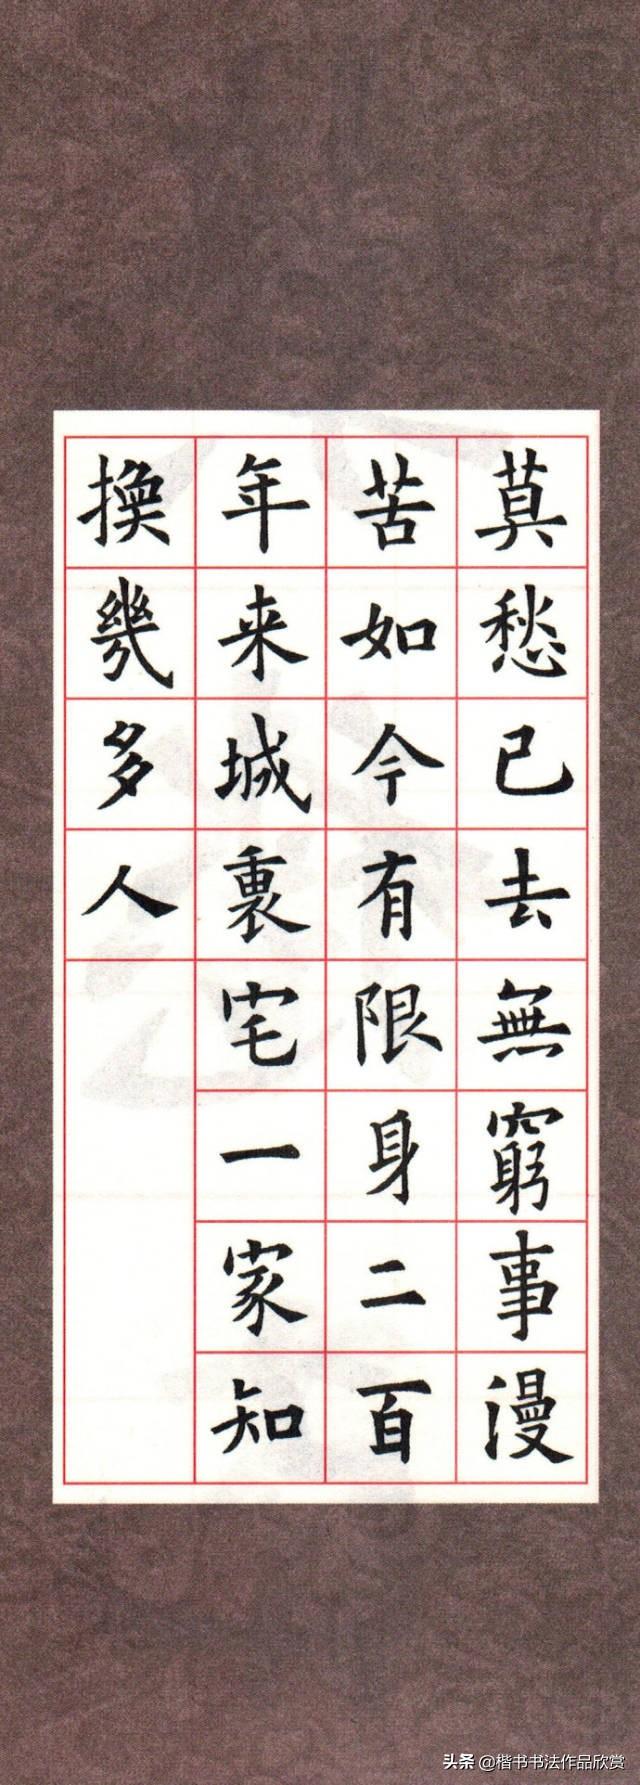 莫愁已去無窮事漫
苦如今有限身二百
年来城裏宅一家知
換幾多人
头条 @楷书书法作品欣赏